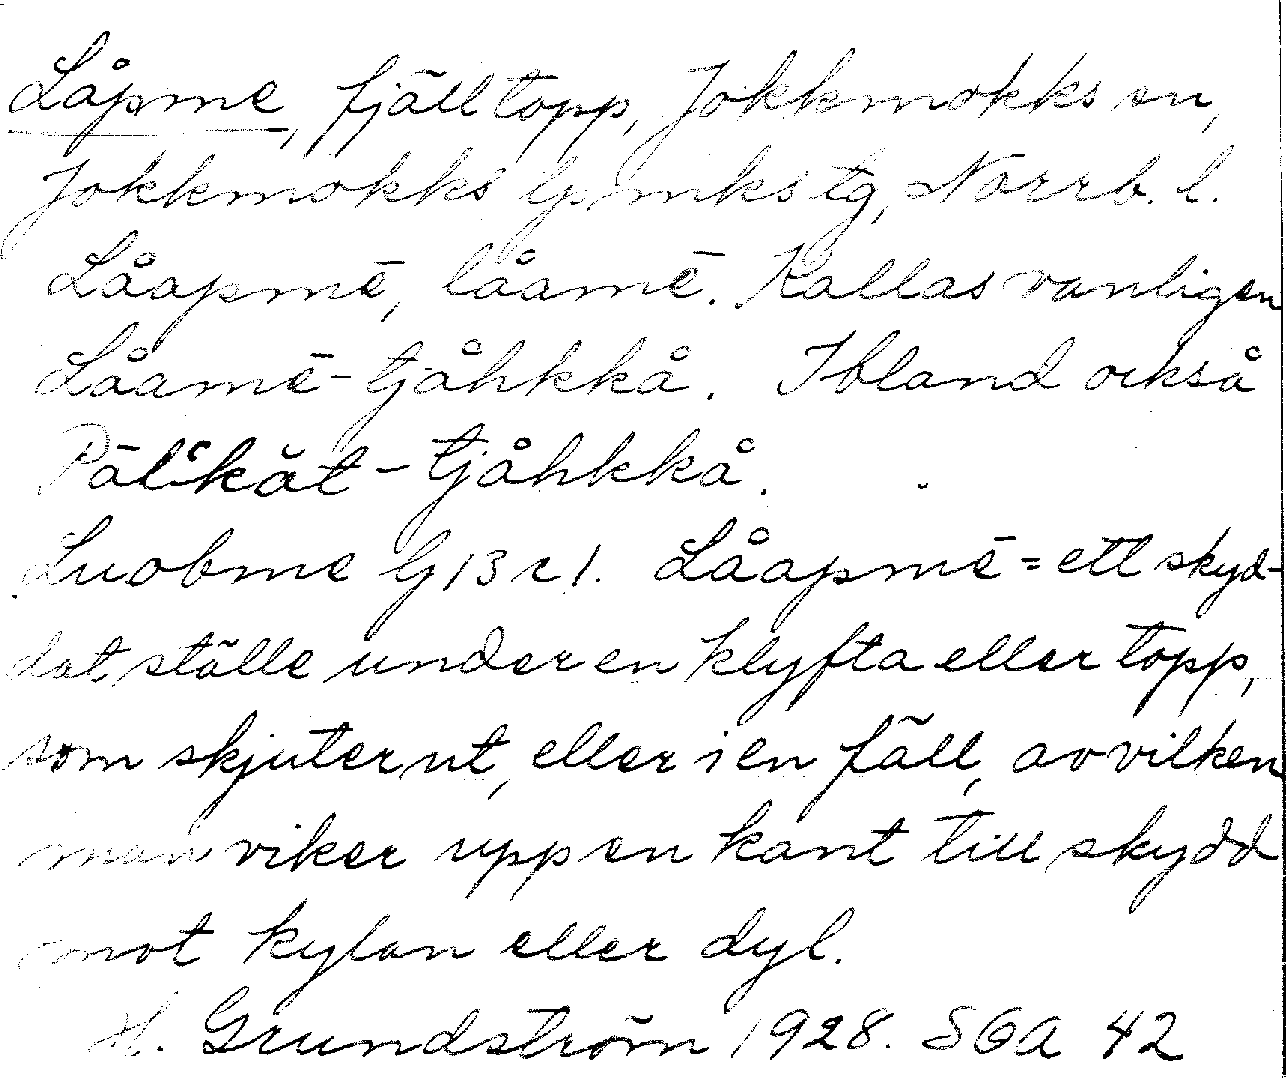 Låpme, fjälltopp, Jokkmokks sn,
Jokkmokks lpmks tg, Norrb. l.
Låapmē, låamē. Kallas vanligen
Låamē-tjåhkkå. Ibland också
Pālikāt-tjåhkkå.
Luobme G 13 r 1. Låapmē = ett skyd-
dat ställe under en klyfta eller topp,
som skjuter ut, eller i en fäll, av vilken
man viker upp en kant till skydd
mot kylan eller dyl.
H. Grundström 1928. SOA 42